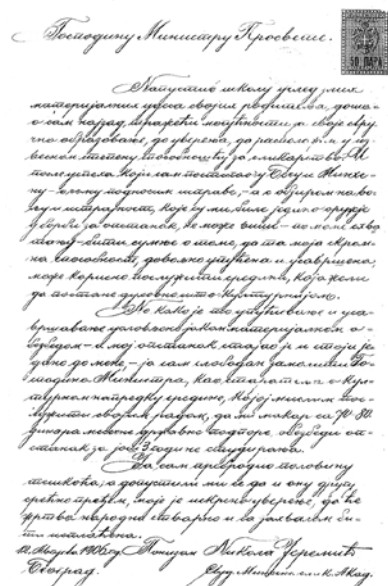 Господину Министру Просвете.
50 ПАРА
Напустио школу услед лоших
материјалних својих родитеља, доша-
о сам назад, тражећи могућности за своје стру-
чно образовање, до уверења, да располажем у из-
весном степену способношћу за сликарство. И
Минхе-
ну
које су ми биле једино оружје
у борби за опстанак, не може више
бити сумње о томе, да та моја скром-
на способност, довољно упућена и усавршена,
може корисно послужити средини, која жели
да постане духовно што културнијом.
Но како је то упућивање и уса-
вршавање условљено јаком материјалном о-
безбедом — а мој опстанак стајао је и стоји је-
дино до мене, — ја сам слободан замолити Го-
сподина Министра, као старатеља о кул-
турном напретку средине, којој мислим пос-
лужити својим радом, да ми макар са 70-80
динара месечне државне потпоре обезбеди оп-
станак за још 3 године студирања.
Ја сам пребродио половину
тешкоћа, а допустили ми се да и ону другу
срећно пређем, моје је искрено уверење, да ће
жртва народна стварно и са захвалом би-
ти исплаћена.
12. 1906 год. Понизан Никола Јеремић
Београд. Минхенске слик. Акад.